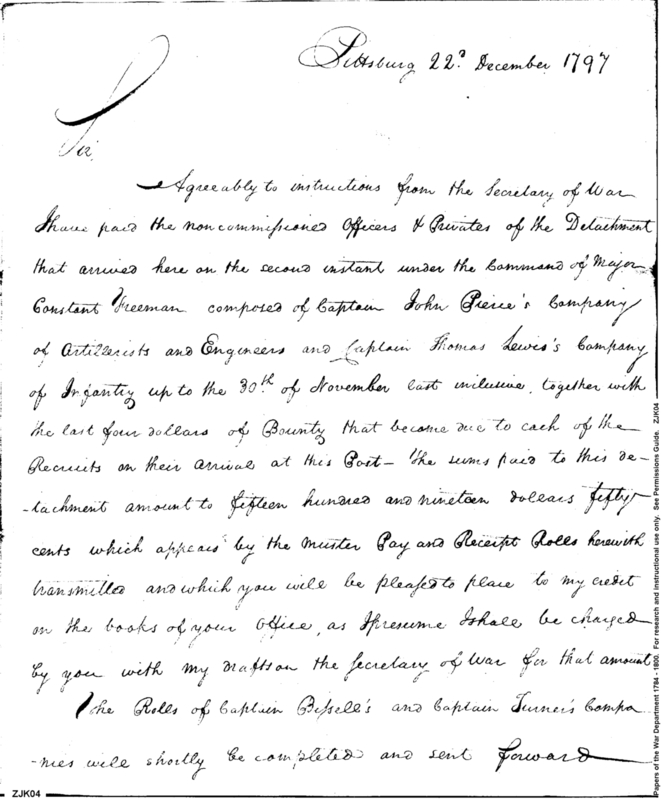 Pittsburg 22d December 1797
Sir,
Agreeably to instructions from the Secretary of War
I have paid the noncommissioned Officers & Privates of the Detachment
that arrived here on the second instant under the Command of Major
Constant Freeman composed of Captain John Pierce's Company
of Artillerists and Engineers and Captain Thomas Lewis's Company
of Infantry up to the 30th of November last inclusive, together with
the last four dollars of Bounty that become due to each of the
Recruits on their arrival at this Post – The sums paid to this de-
-tachment amount to fifteen hundred and nineteen dollars fifty
cents which appears by the Muster Pay and Receipt Rolls herewith
transmitted and which you will be pleased to place to my credit
on the books of your Office, as I presume I shall be charged
by you with my drafts on the Secretary of War for that amount
The Rolls of Captain Bissell's and Captain Turner's Compa
-nies will shortly be completed and sent forward
ZJK04
Papers of the War Department 1784 - 1800. For research and instructional use only. See Permissions Guide. ZJK04